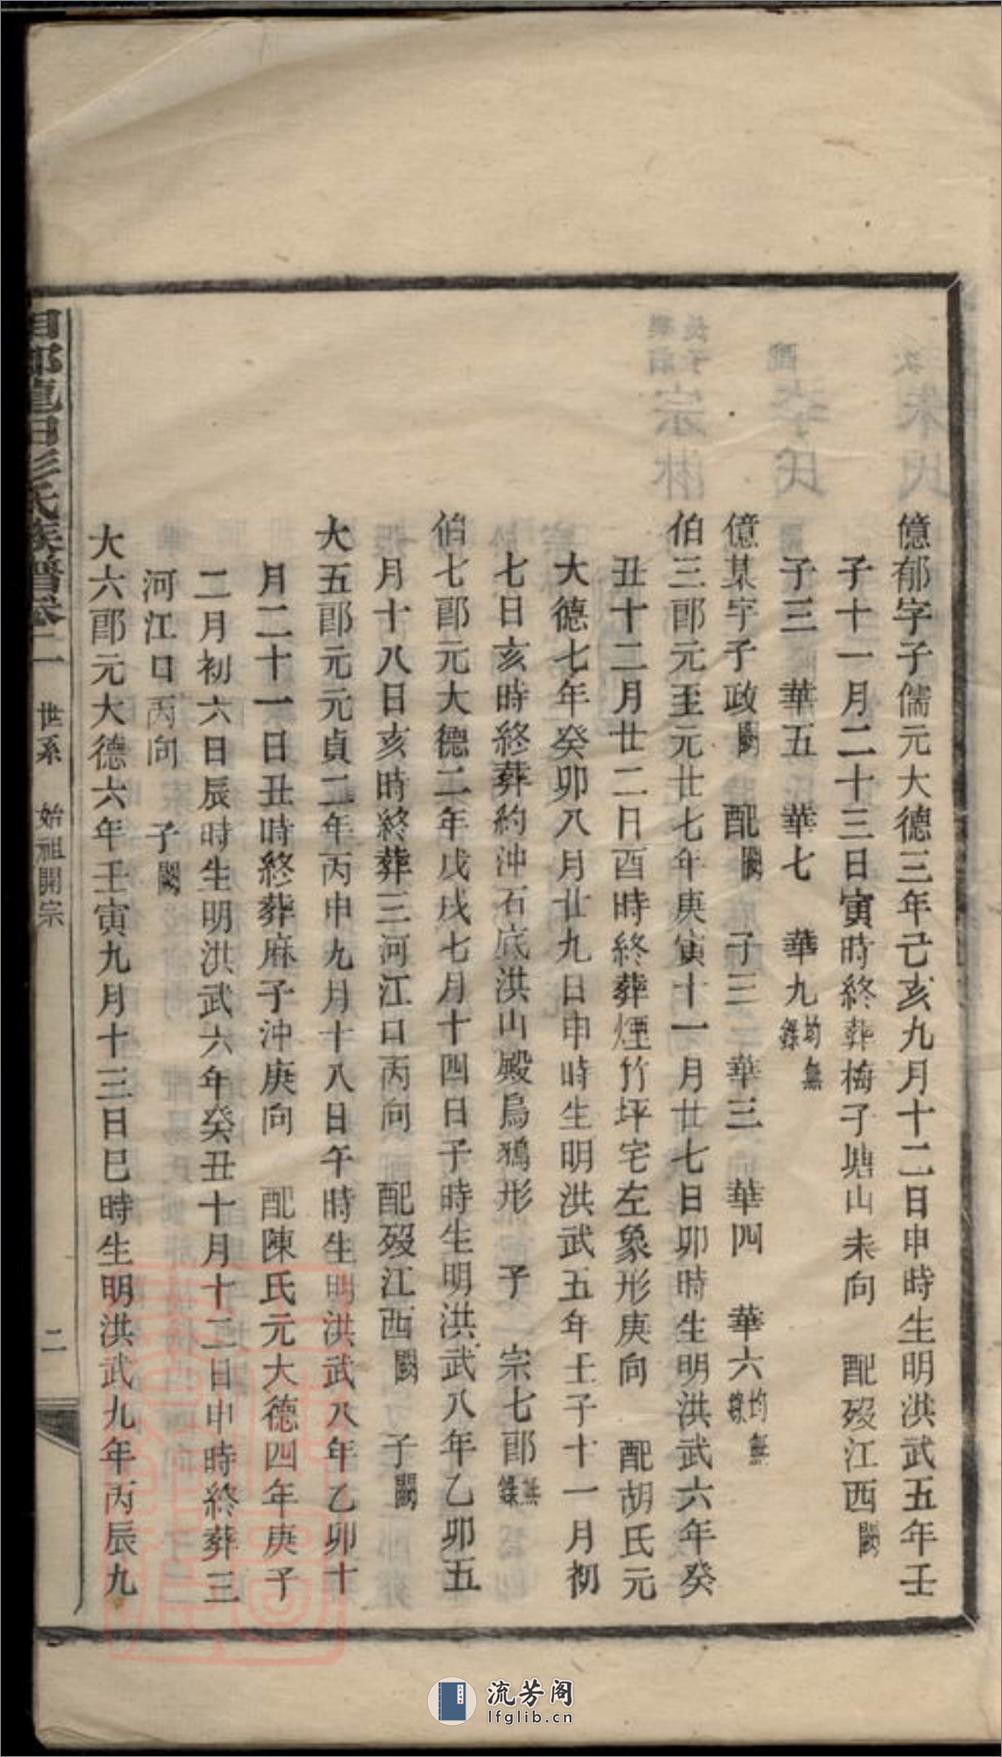 億郁字子儒元大德三年己亥九月十二日申時生明洪武五年壬
子十一月二十三日寅時終葬梅子塘山未向　配歿江西闕
子三　華五　華七　華九均無錄
億某字子政闕　配闕　子三　華三　華四　華六均無錄
伯三郎元至元廿七年庚寅十一月廿七日卯時生明洪武六年癸
丑十二月廿二日酉時終葬煙竹坪宅左象形庚向　配胡氏元
大德七年癸卯八月廿九日申時生明洪武五年壬子十一月初
七日亥時終葬約沖石底洪山殿烏鴉形　子一　宗七郎無錄
伯七郎元大德二年戊戌七月十四日子時生明洪武八年乙卯五
月十八日亥時終葬三河江口丙向　配歿江西闕　子闕
大五郎元元貞二年丙申九月十八日午時生明洪武八年乙卯十
月二十一日丑時終葬麻子沖庚向　配陳氏元大德四年庚子
二月初六日辰時生明洪武六年癸丑十月十二日申時終葬三
河江口丙向　子闕
大六郎元大德六年壬寅九月十三日巳時生明洪武九年丙辰九
龍田彭氏族譜卷二　世系　始祖開宗　二
流芳阁
lfglib.cn